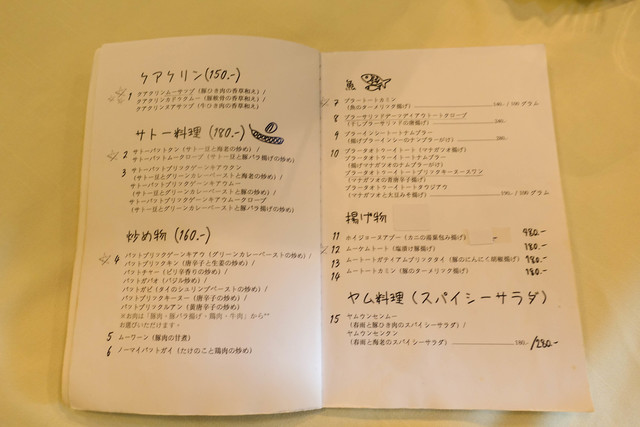 クアクリン(150.-)
1 クアクリンムーサップ（豚ひき肉の香草和え）/
クアクリンカドゥクムー（豚軟骨の香草和え）/
クアクリンヌアサップ（牛ひき肉の香草和え）
サトー料理（180.-）
2 サトーパットクン（サトー豆と海老の炒め）/
サトーパットムークロープ（サトー豆と豚バラ揚げの炒め）
3 サトーパットプリックゲーンキアウクン
（サトー豆とグリーンカレーペーストと海老の炒め）/
サトーパットプリックゲーンキアウムー
（サトー豆とグリーンカレーペーストと豚の炒め）/
サトーパットプリックゲーンキアウムークローブ
（サトー豆とグリーンカレーペーストと豚バラ揚げの炒め）
炒め物（160.-）
4 パットプリックゲーンキアウ（グリーンカレーペーストの炒め）/
パットプリックキン（唐辛子と生姜の炒め）/
パットチャー（ピリ辛香りの炒め）/
パットガパオ（バジル炒め）/
パットガピ（タイのシュリンプペーストの炒め）/
パットプリックキーヌー（唐辛子の炒め）/
パットプリックルアン（黄唐辛子の炒め）
※お肉は「豚肉・豚バラ揚げ・鶏肉・牛肉」から
お選びいただけます。
5 ムーワーン（豚肉の甘煮）
6 ノーマイパットガイ（たけのこと鶏肉の炒め）
魚
7 プラートートカミン
（魚のターメリック揚げ） 140.- / 100 グラム
8 プラーサリッドデーッディアウトートクローブ
（干しプラーサリッドの唐揚げ） 240.-
9 プラーインシートートナムプラー
（揚げプラーインシーのナンプラーがけ） 260.-
10 プラータオトゥーイトート（マナガツオ揚げ）
プラータオトゥーイトートナムプラー
（揚げマナガツオのナンプラーがけ）
プラータオトゥーイトートプリックキーヌースワン
（マナガツオの青唐辛子揚げ）
プラータオトゥーイトートタウジアウ
（マナガツオと大豆みそ揚げ） 190.- / 100 グラム
揚げ物
11 ホイジョーヌアプー（カニの湯葉包み揚げ） 980.-
12 ムーケムトート（塩漬け豚揚げ） 180.-
13 ムートートガティアムプリックタイ（豚のにんにく胡椒揚げ） 180.-
14 ムートートカミン（豚のターメリック揚げ） 180.-
ヤム料理（スパイシーサラダ）
15 ヤムウンセンムー
（春雨と豚ひき肉のスパイシーサラダ）/
ヤムウンセンクン
（春雨と海老のスパイシーサラダ） 180.- /280.-